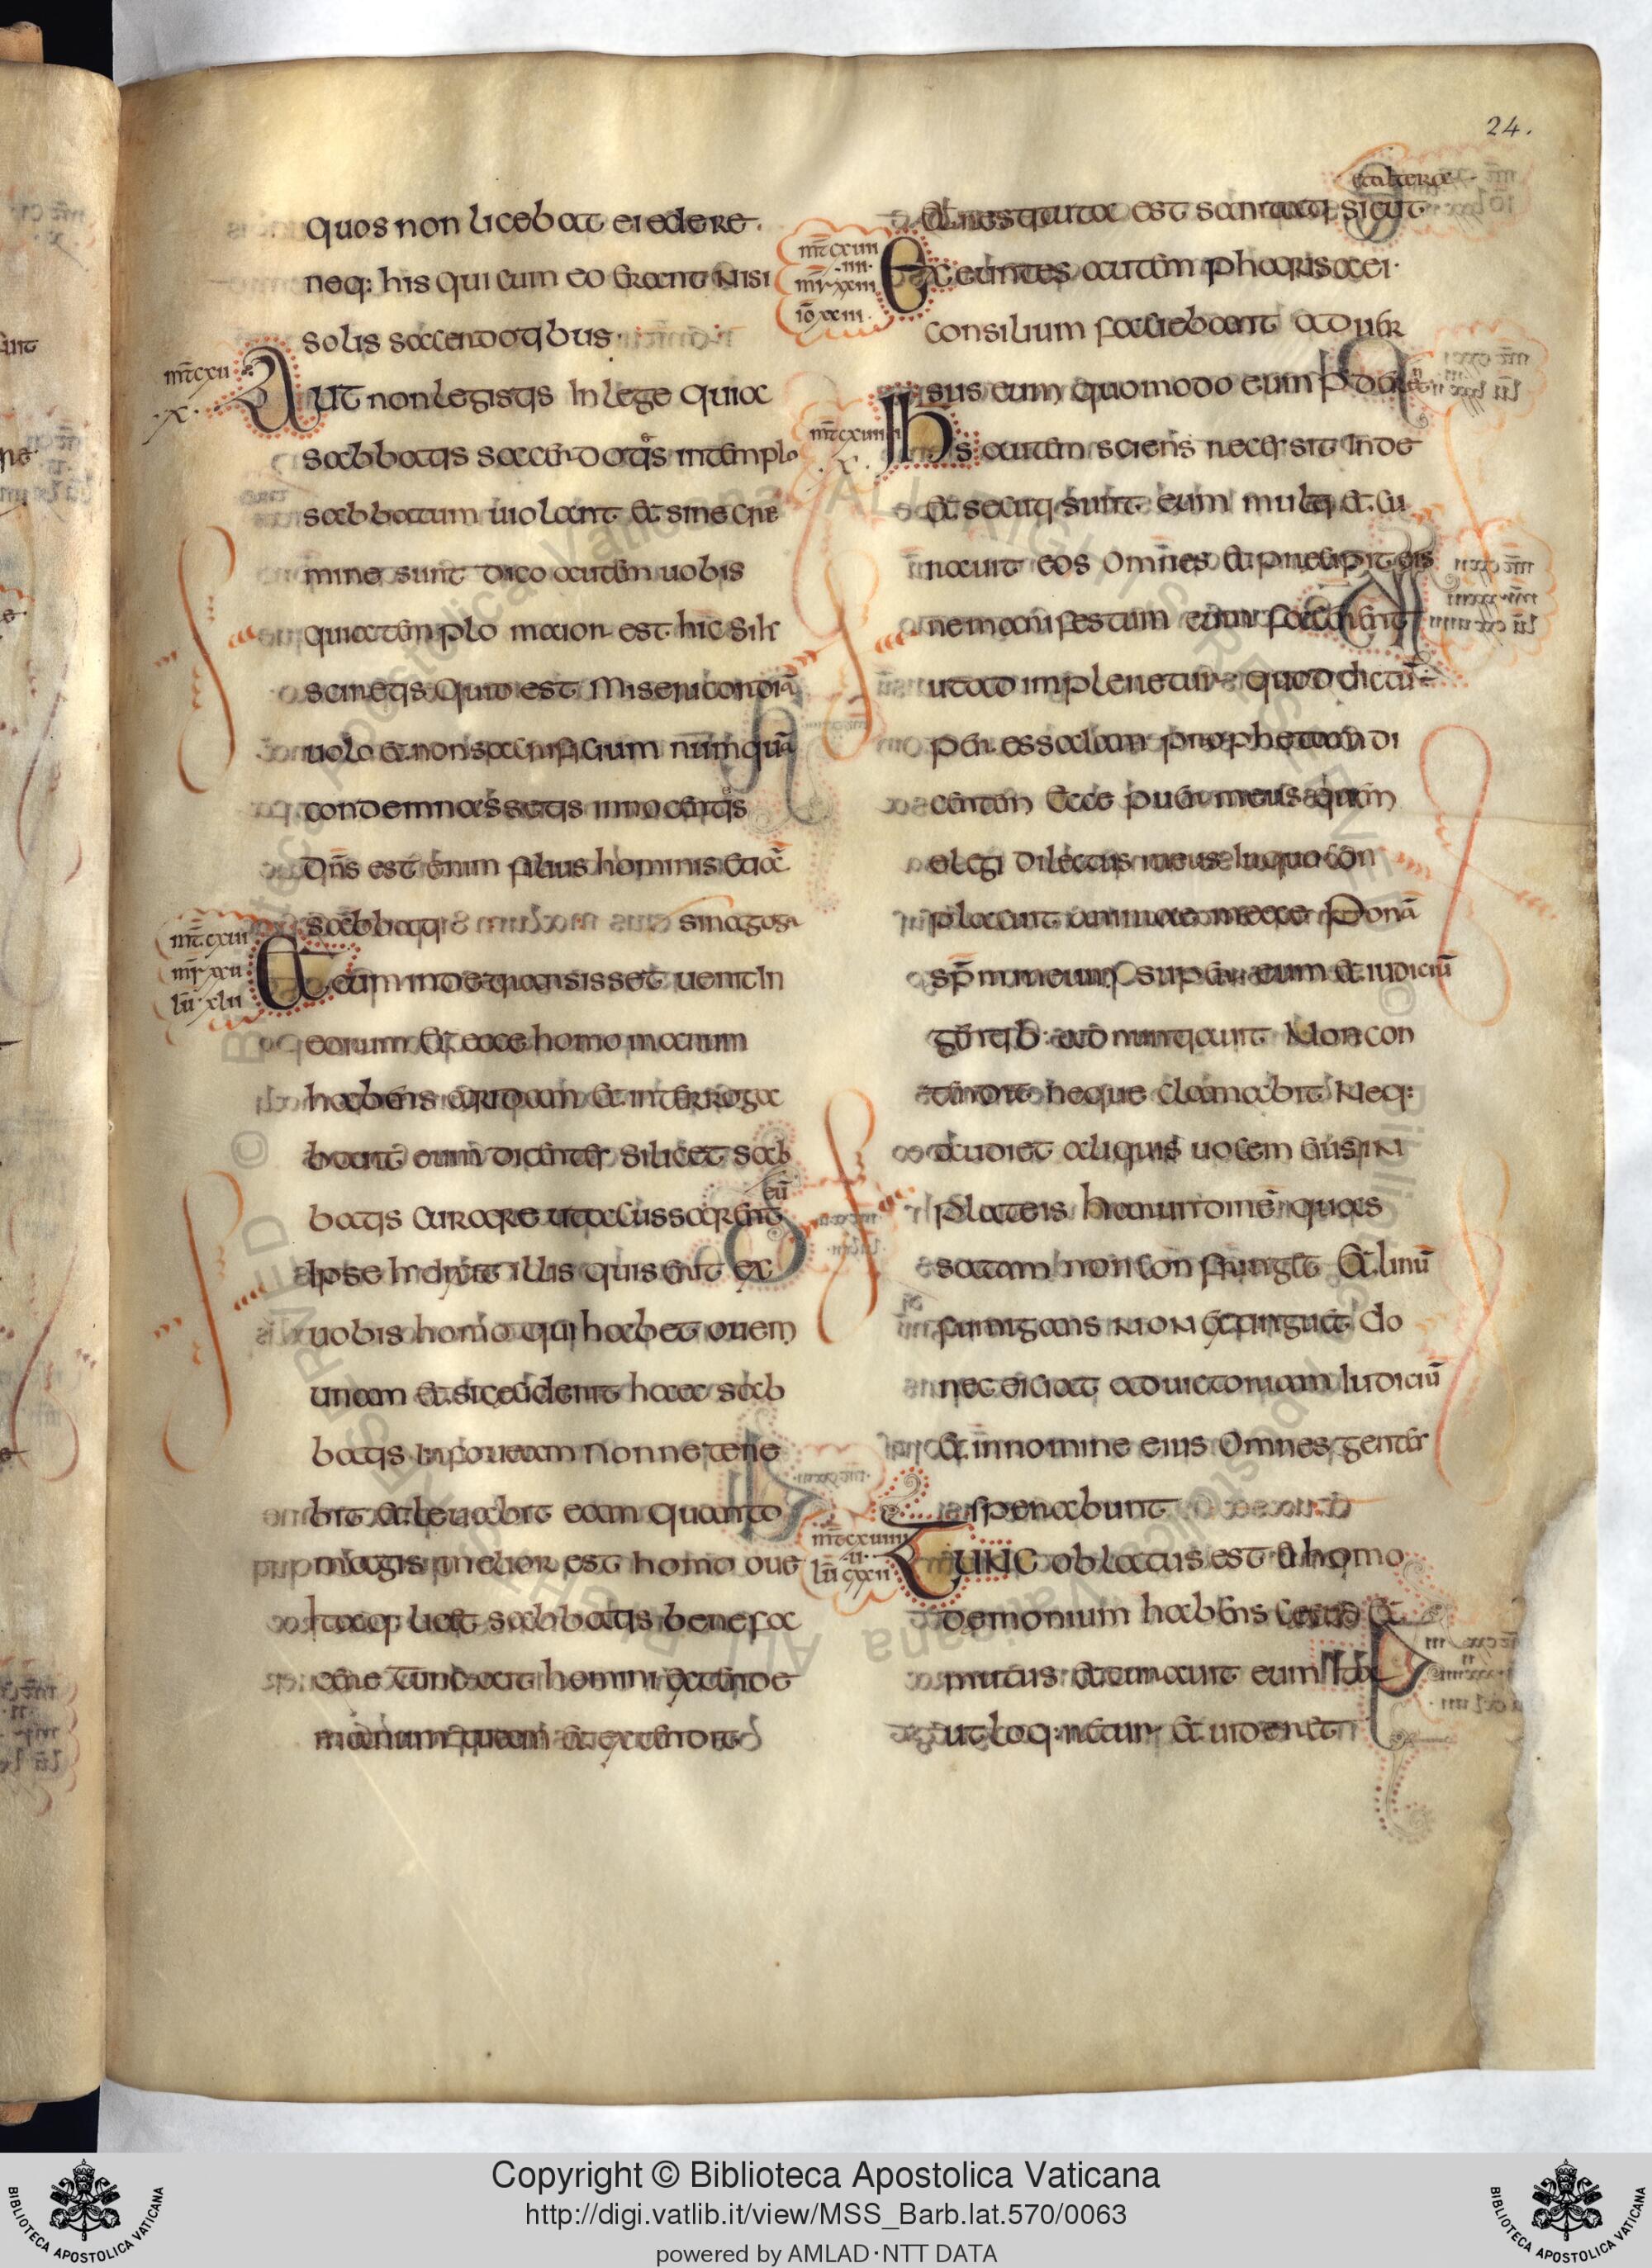 24.
quos non licebat ei edere.
neq: his qui cum eo erant nisi
solis sacerdotibus
mt cxii
x
Aut non legistis in lege quia
sabbatis sacerdotes in templo
sabbatum uiolant et sine cri
mine sunt dico autem uobis
quia templo maior est hic Si
sciretis quid est misericordiā
uolo et non sacrificium numquā
condemnassetis innocentes
dn̄s est enim filius hominis etiā
sabbati
sinagoga
mt cxiii
mr xxii
lu xlii
Et cum inde transisset uenit in
eorum et ecce homo manum
habens aridam et interroga
bant eum dicentes si licet sab
batis curare ut accussarent
eū
Ipse dixit illis quis erit ex
uobis homo qui habet ouem
unam et si ceciderit haec sab
batis in foueam nonne tene
bit et leuabit eam quanto
magis melior est homo oue
Itaq licet sabbatis benefa
cere tunc ait homini extende
manum tuam et extendit
et altera
et restituta est sanitati sicut
mt cxiiii
iiii
mr xxiii
Exeuntes autem pharisaei
consilium faciebant aduer
sus eum quomodo eum
mt cxu
x
Ihs autem sciens secessit inde
et secuti sunt eum multi et cu
rauit eos omnes et precipit eis
ne manifestum eum facerent
ut adimpleretur quod dictū ÷
per essaiam prophetam di
centem Ecce puer meus quem
elegi dilectus meus in quo con
placuit animae meae Ponā
sp̄m meum super eum et iudiciū
gentib: nuntiauit Non con
tendit neque clamabit Neq:
audiet aliquis uocem eius in
plateis harundinē quas
satam non confringet Et linū
fumigans non extinguet do
nec eiciat ad uictoriam iudiciū
et in nomine eius omnes gentes
sperabunt
mt cxuiiii
u
lu cxxii
Tunc oblatus est ei homo
demonium habens cecus et
mutus et curauit eum Ita
ut loqueretur et uideret
Copyright © Biblioteca Apostolica Vaticana
http://digi.vatlib.it/view/MSS_Barb.lat.570/0063
powered by AMLAD·NTT DATA
BIBLIOTECA APOSTOLICA VATICANA
BIBLIOTECA APOSTOLICA VATICANA